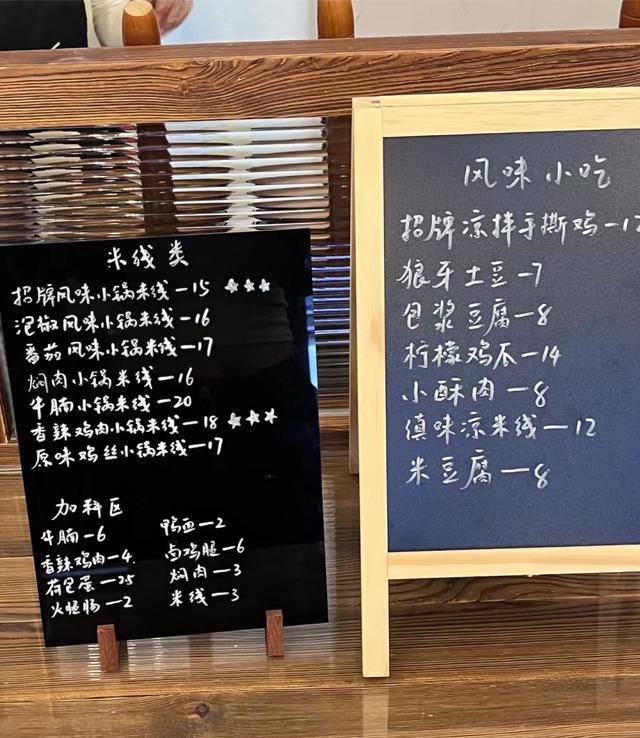 米线类
招牌风味小锅米线—15 ★★★
泡椒风味小锅米线—16
番茄风味小锅米线—17
焖肉小锅米线—16
牛腩小锅米线—20
香辣鸡肉小锅米线—18 ★★★
原味鸡丝小锅米线—17
加料区
牛腩—6 鸭血—2
香辣鸡肉—4 卤鸡腿—6
荷包蛋—25 焖肉—3
火腿肠—2 米线—3
风味小吃
招牌凉拌手撕鸡—
狼牙土豆—7
包浆豆腐—8
柠檬鸡爪—14
小酥肉—8
滇味凉米线—12
米豆腐—8